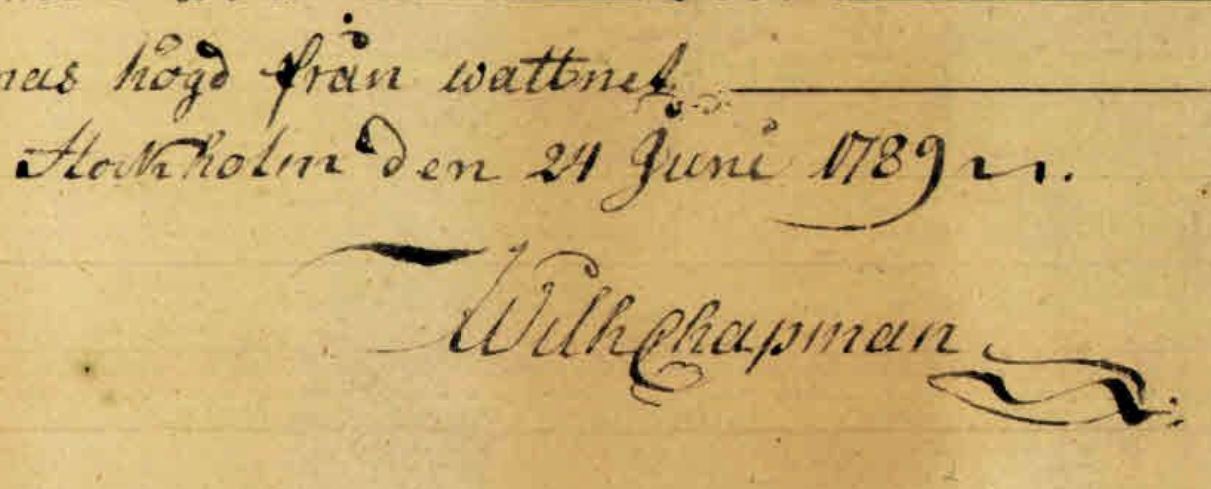 nas högd från wattnet
Stockholm den 24 Juni 1789
Wilh Chapman